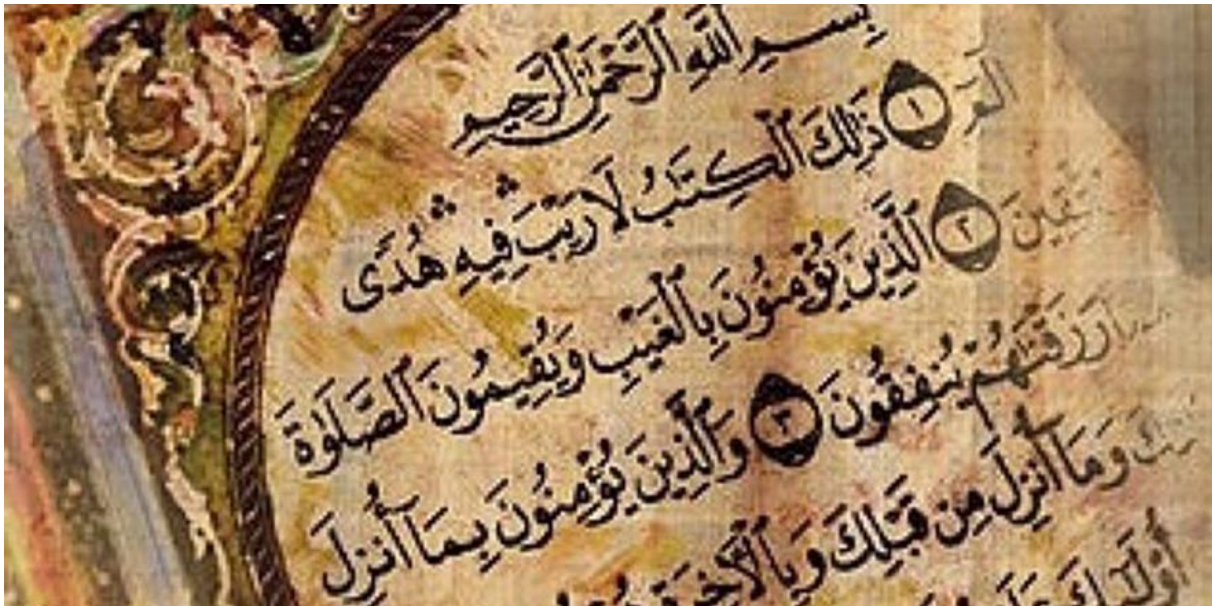 بِسْمِ ٱللَّهِ ٱلرَّحْمَٰنِ ٱلرَّحِيمِ
الٓمٓ ١ ذَٰلِكَ ٱلْكِتَٰبُ لَا رَيْبَ ۛ فِيهِ ۛ هُدًى
ٱلَّذِينَ يُؤْمِنُونَ بِٱلْغَيْبِ وَيُقِيمُونَ ٱلصَّلَوٰةَ ٢
رَزَقْنَٰهُمْ يُنفِقُونَ ٣ وَٱلَّذِينَ يُؤْمِنُونَ بِمَآ أُنزِلَ
وَمَآ أُنزِلَ مِن قَبْلِكَ وَبِٱلْءَاخِرَةِ
أُو۟لَٰٓئِكَ